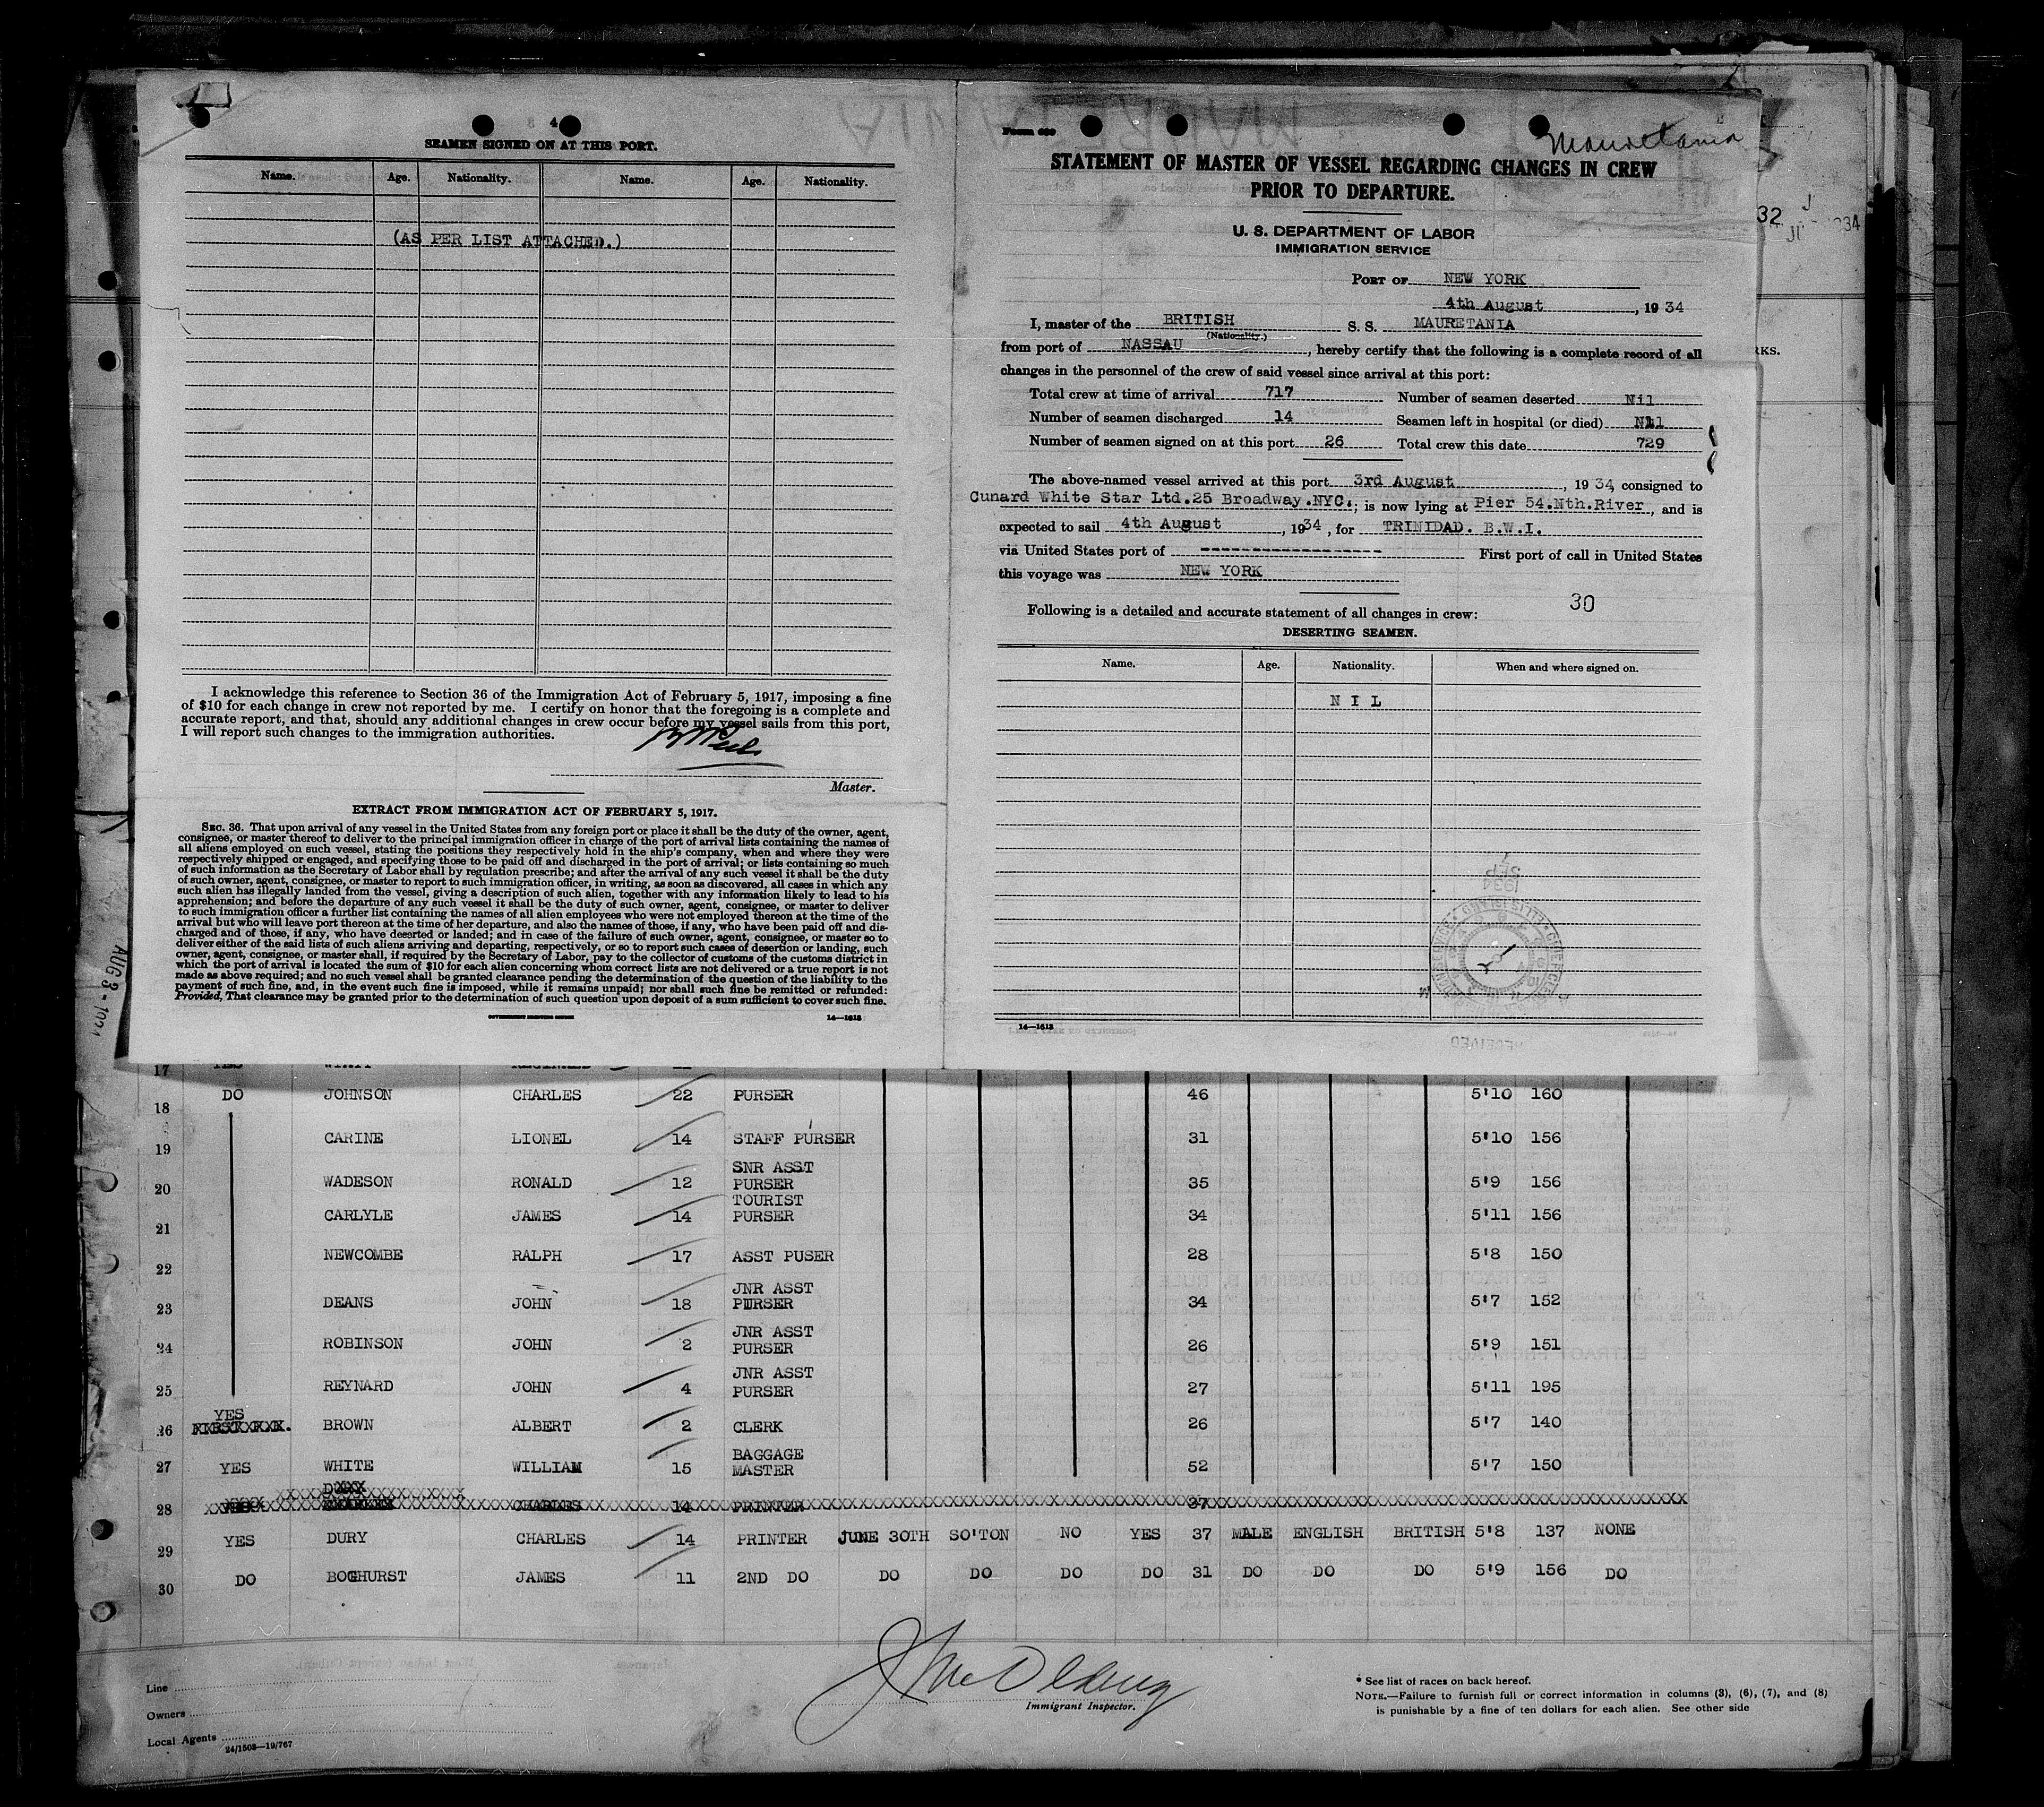 4
SEAMEN SIGNED ON AT THIS PORT.
Name. Age. Nationality. Name. Age. Nationality.
(AS PER LIST ATTACHED.)
I acknowledge this reference to Section 36 of the Immigration Act of February 5, 1917, imposing a fine
of $10 for each change in crew not reported by me. I certify on honor that the foregoing is a complete and
accurate report, and that, should any additional changes in crew occur before my vessel sails from this port,
I will report such changes to the immigration authorities.
Master.
EXTRACT FROM IMMIGRATION ACT OF FEBRUARY 5, 1917.
SEC. 36. That upon arrival of any vessel in the United States from any foreign port or place it shall be the duty of the owner, agent,
consignee, or master thereof to deliver to the principal immigration officer in charge of the port of arrival lists containing the names of
all aliens employed on such vessel, stating the positions they respectively hold in the ship's company, when and where they were
respectively shipped or engaged, and specifying those to be paid off and discharged in the port of arrival; or lists containing so much
of such information as the Secretary of Labor shall by regulation prescribe; and after the arrival of any such vessel it shall be the duty
of such owner, agent, consignee, or master to report to such immigration officer, in writing, as soon as discovered, all cases in which any
such alien has illegally landed from the vessel, giving a description of such alien, together with any information likely to lead to his
apprehension; and before the departure of any such vessel it shall be the duty of such owner, agent, consignee, or master to deliver
to such immigration officer a further list containing the names of all alien employees who were not employed thereon at the time of the
arrival but who will leave port thereon at the time of her departure, and also the names of those, if any, who have been paid off and dis-
charged and of those, if any, who have deserted or landed; and in case of the failure of such owner, agent, consignee, or master so to
deliver either of the said lists of such aliens arriving and departing, respectively, or so to report such cases of desertion or landing, such
owner, agent, consignee, or master shall, if required by the Secretary of Labor, pay to the collector of customs of the customs district in
which the port of arrival is located the sum of $10 for each alien concerning whom correct lists are not delivered or a true report is not
made as above required; and no such vessel shall be granted clearance pending the determination of the question of the liability to the
payment of such fine, and, in the event such fine is imposed, while it remains unpaid; nor shall such fine be remitted or refunded:
Provided, That clearance may be granted prior to the determination of such question upon deposit of a sum sufficient to cover such fine.
GOVERNMENT PRINTING OFFICE 14—1613
Mauretania
STATEMENT OF MASTER OF VESSEL REGARDING CHANGES IN CREW
PRIOR TO DEPARTURE.
U. S. DEPARTMENT OF LABOR
IMMIGRATION SERVICE
PORT OF NEW YORK
4th August, 1934
I, master of the BRITISH S. S. MAURETANIA
(Nationality.)
from port of NASSAU, hereby certify that the following is a complete record of all
changes in the personnel of the crew of said vessel since arrival at this port:
Total crew at time of arrival 717 Number of seamen deserted Nil
Number of seamen discharged 14 Seamen left in hospital (or died) Nil
Number of seamen signed on at this port 26 Total crew this date 729
The above-named vessel arrived at this port 3rd August, 1934, consigned to
Cunard White Star Ltd.25 Broadway.NYC.; is now lying at Pier 54.Nth.River, and is
expected to sail 4th August, 1934, for TRINIDAD. B.W.I.
via United States port of ------------------ First port of call in United States
this voyage was NEW YORK
30
Following is a detailed and accurate statement of all changes in crew:
DESERTING SEAMEN.
Name. Age. Nationality. When and where signed on.
N I L
14—1613
32
RKS.
AUG 3 -
17
18 DO JOHNSON CHARLES 22 PURSER 46 5'10 160
19 CARINE LIONEL 14 STAFF PURSER 31 5'10 156
SNR ASST
20 WADESON RONALD 12 PURSER 35 5'9 156
TOURIST
21 CARLYLE JAMES 14 PURSER 34 5'11 156
22 NEWCOMBE RALPH 17 ASST PUSER 28 5'8 150
JNR ASST
23 DEANS JOHN 18 PURSER 34 5'7 152
JNR ASST
24 ROBINSON JOHN 2 PURSER 26 5'9 151
JNR ASST
25 REYNARD JOHN 4 PURSER 27 5'11 195
YES
26 BROWN ALBERT 2 CLERK 26 5'7 140
BAGGAGE
27 YES WHITE WILLIAM 15 MASTER 52 5'7 150
28 CHARLES 14 PRINTER 37
29 YES DURY CHARLES 14 PRINTER JUNE 30TH SO'TON NO YES 37 MALE ENGLISH BRITISH 5'8 137 NONE
30 DO BOGHURST JAMES 11 2ND DO DO DO DO DO 31 DO DO DO 5'9 156 DO
Line
Owners
Local Agents
24/1503—19/767
Immigrant Inspector.
* See list of races on back hereof.
NOTE.—Failure to furnish full or correct information in columns (3), (6), (7), and (8)
is punishable by a fine of ten dollars for each alien. See other side